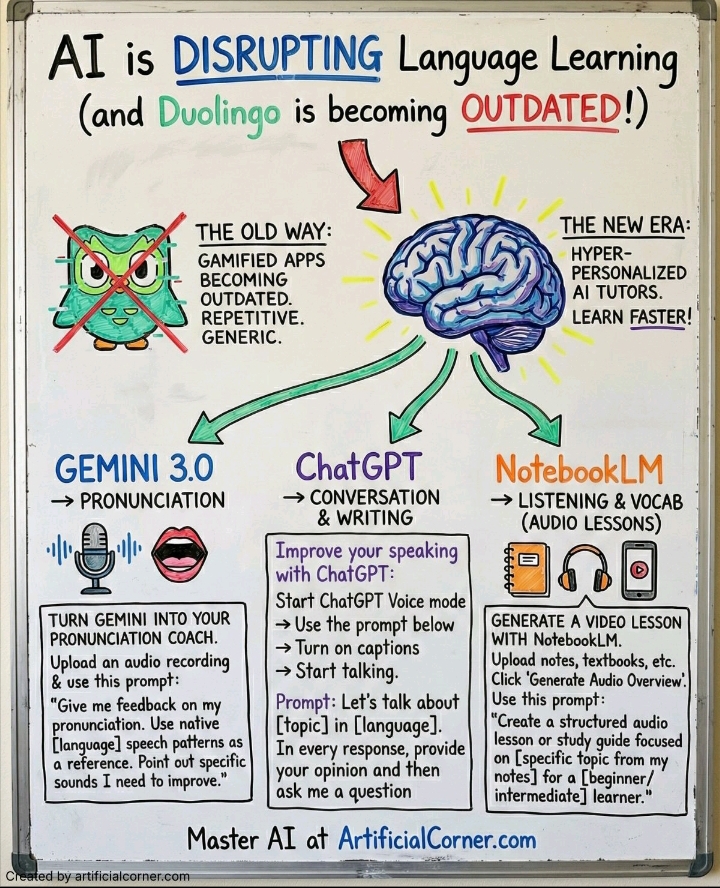 AI is DISRUPTING Language Learning
(and Duolingo is becoming OUTDATED!)
THE OLD WAY:
GAMIFIED APPS
BECOMING
OUTDATED.
REPETITIVE.
GENERIC.
THE NEW ERA:
HYPER-
PERSONALIZED
AI TUTORS.
LEARN FASTER!
GEMINI 3.0
→ PRONUNCIATION
TURN GEMINI INTO YOUR
PRONUNCIATION COACH.
Upload an audio recording
& use this prompt:
"Give me feedback on my
pronunciation. Use native
[language] speech patterns as
a reference. Point out specific
sounds I need to improve."
ChatGPT
→ CONVERSATION
& WRITING
Improve your speaking
with ChatGPT:
Start ChatGPT Voice mode
→ Use the prompt below
→ Turn on captions
→ Start talking.
Prompt: Let's talk about
[topic] in [language].
In every response, provide
your opinion and then
ask me a question
NotebookLM
→ LISTENING & VOCAB
(AUDIO LESSONS)
GENERATE A VIDEO LESSON
WITH NotebookLM.
Upload notes, textbooks, etc.
Click 'Generate Audio Overview'.
Use this prompt:
"Create a structured audio
lesson or study guide focused
on [specific topic from my
notes] for a [beginner/
intermediate] learner."
Master AI at ArtificialCorner.com
Created by artificialcorner.com